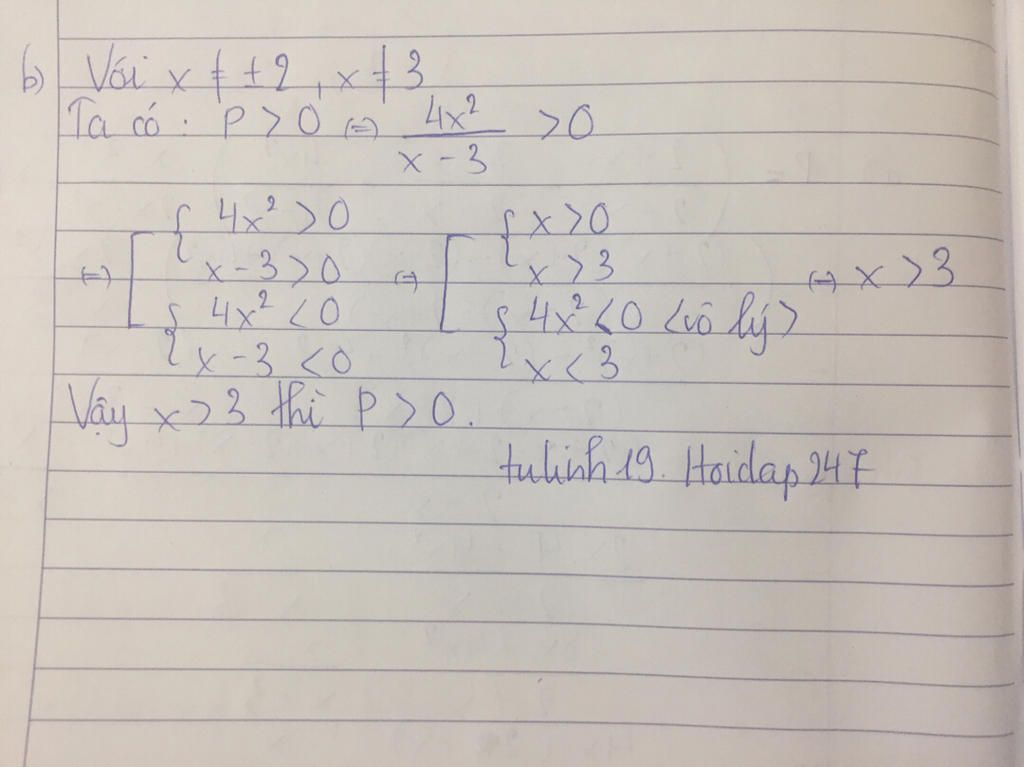 b) Với x ≠ ±2, x ≠ 3
Ta có: P > 0 (=) 4x²/(x - 3) > 0
(=) [ { 4x² > 0 (=) [ { x > 0
x - 3 > 0 x > 3 (=) x > 3
{ 4x² < 0 { 4x² < 0 <vô lý>
x - 3 < 0 x < 3
Vậy x > 3 thì P > 0.
tulinh19. Hoidap247